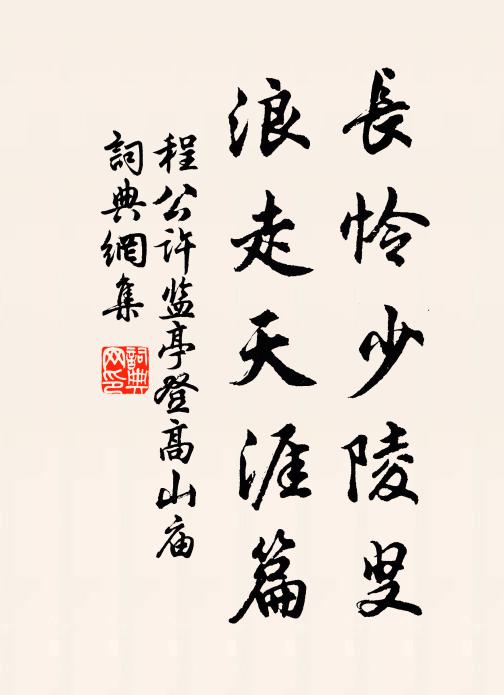 長怜少陵叟
浪走天涯篇
程公许监亭登高山庙
詞典網集
詞典网印